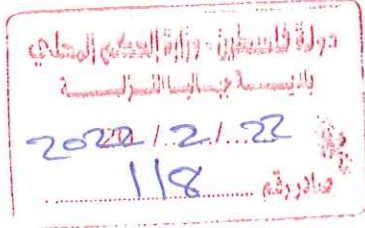 دولة فلسطين - وزارة الحكم المحلي
بلديـــة جبـاليـا النـزلـــة
2022 / 2 / 22
صادر رقم ..... 118 .....